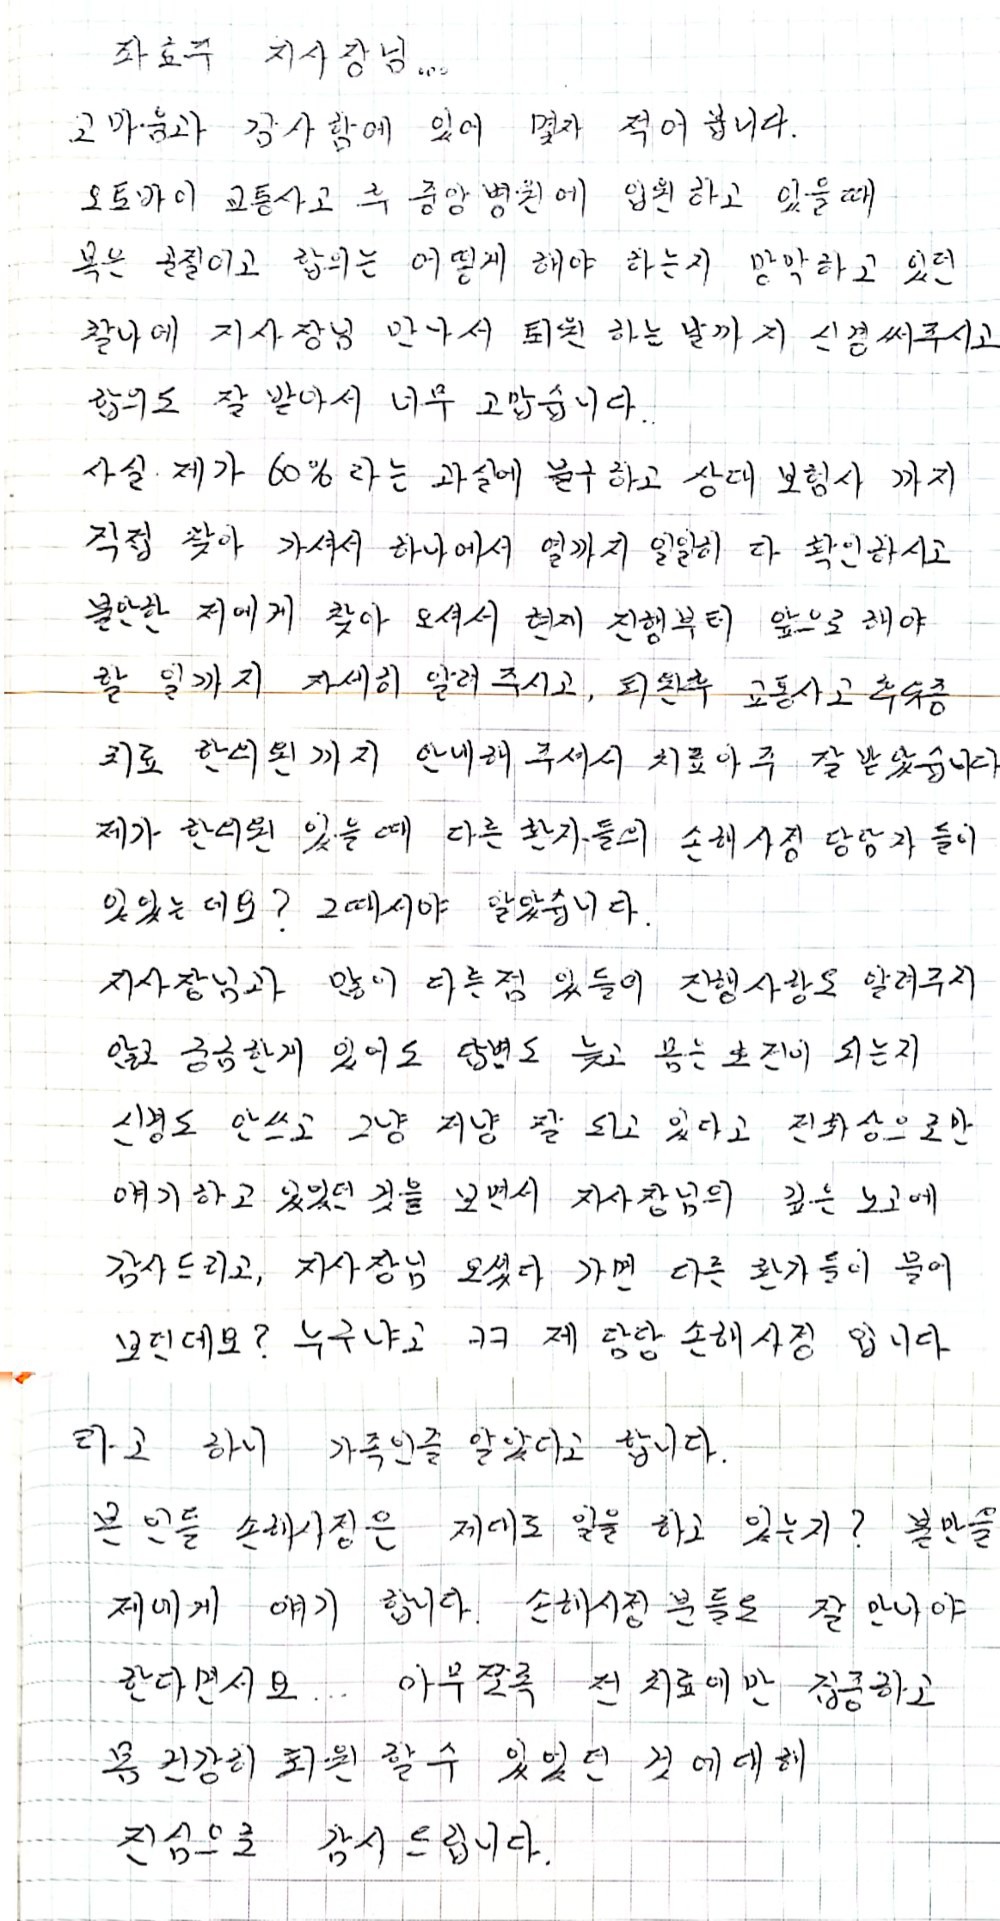 좌효주 지사장님...
고마움과 감사함에 있어 몇자 적어 봅니다.
오토바이 교통사고 후 중앙병원에 입원하고 있을때
목은 골절이고 합의는 어떻게 해야 하는지 망막하고 있던
찰나에 지사장님 만나서 퇴원 하는 날까지 신경써주시고
합의도 잘 받아서 너무 고맙습니다..
사실 제가 60%라는 과실에 불구하고 상대 보험사 까지
직접 찾아 가셔서 하나에서 열까지 일일히 다 확인하시고
불안한 저에게 찾아 오셔서 현재 진행부터 앞으로 해야
할 일까지 자세히 알려 주시고, 퇴원후 교통사고 후유증
치료 한의원까지 안내해 주셔서 치료아주 잘 받았습니다
제가 한의원 있을때 다른 환자들의 손해사정 담당자 들이
있었는데요? 그때서야 알았습니다.
지사장님과 많이 다른점 있들이 진행사항도 알려주지
않고 궁금한게 있어도 답변도 늦고 몸는 호전이 되는지
신경도 안쓰고 그냥 저냥 잘 되고 있다고 전화상으로만
얘기하고 있었던 것을 보면서 지사장님의 깊은 노고에
감사드리고, 지사장님 오셨다 가면 다른 환자들이 물어
보던데요? 누구냐고 ㅋㅋ 제 담당 손해사정 입니다
라고 하니 가족인줄 알았다고 합니다.
본인들 손해사정은 제대로 일을 하고 있는지? 불만을
저에게 얘기 합니다. 손해사정 분들도 잘 만나야
한다면서요... 아무쪼록 전 치료에만 집중하고
몸 건강히 퇴원 할수 있었던 것에대해
진심으로 감사드립니다.